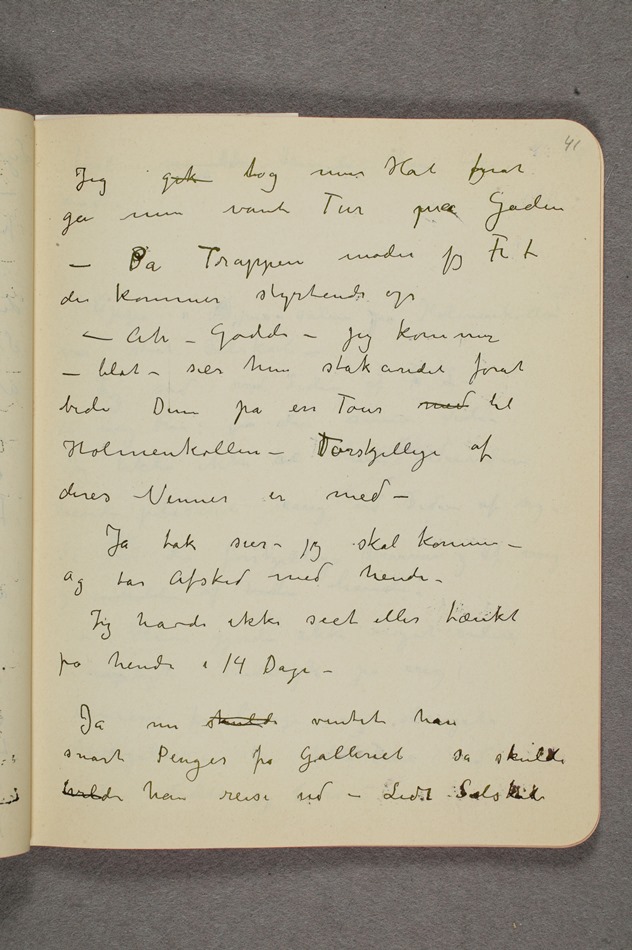 41
Jeg gik tog min Hat forat
gå min vante Tur på Gaden
— På Trappen møder jeg Fr L
der kommer styrtende op
— Ah – Goddag – jeg kommer
– blot – sier hun stakåndet forat
bede Dem på en Tour med til
Holmenkollen – Forskjellige af
deres Venner er med –
Ja tak sier jeg skal komme –
og tar Afsked med hende –
Jeg havde ikke seet eller tænkt
på hende i 14 Dage –
Ja nu skulde ventet han
snart Penger fra Galleriet så skulde
vilde han reise ud – Lidt Selskab